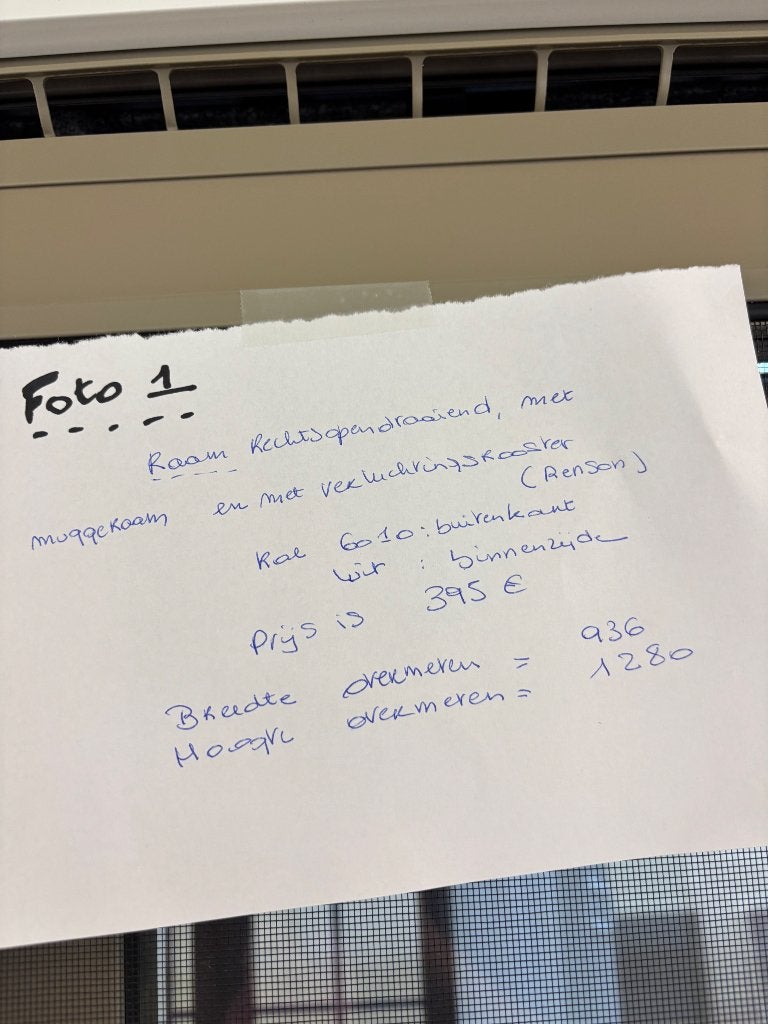 Foto 1
Raam Rechtsopendraaiend, met
muggeraam en met verluchtingsrooster
(Renson)
Ral 6010: buitenkant
wit : binnenzijde
Prijs is 395 €
Breedte overmeren = 936
Hoogte overmeren = 1280